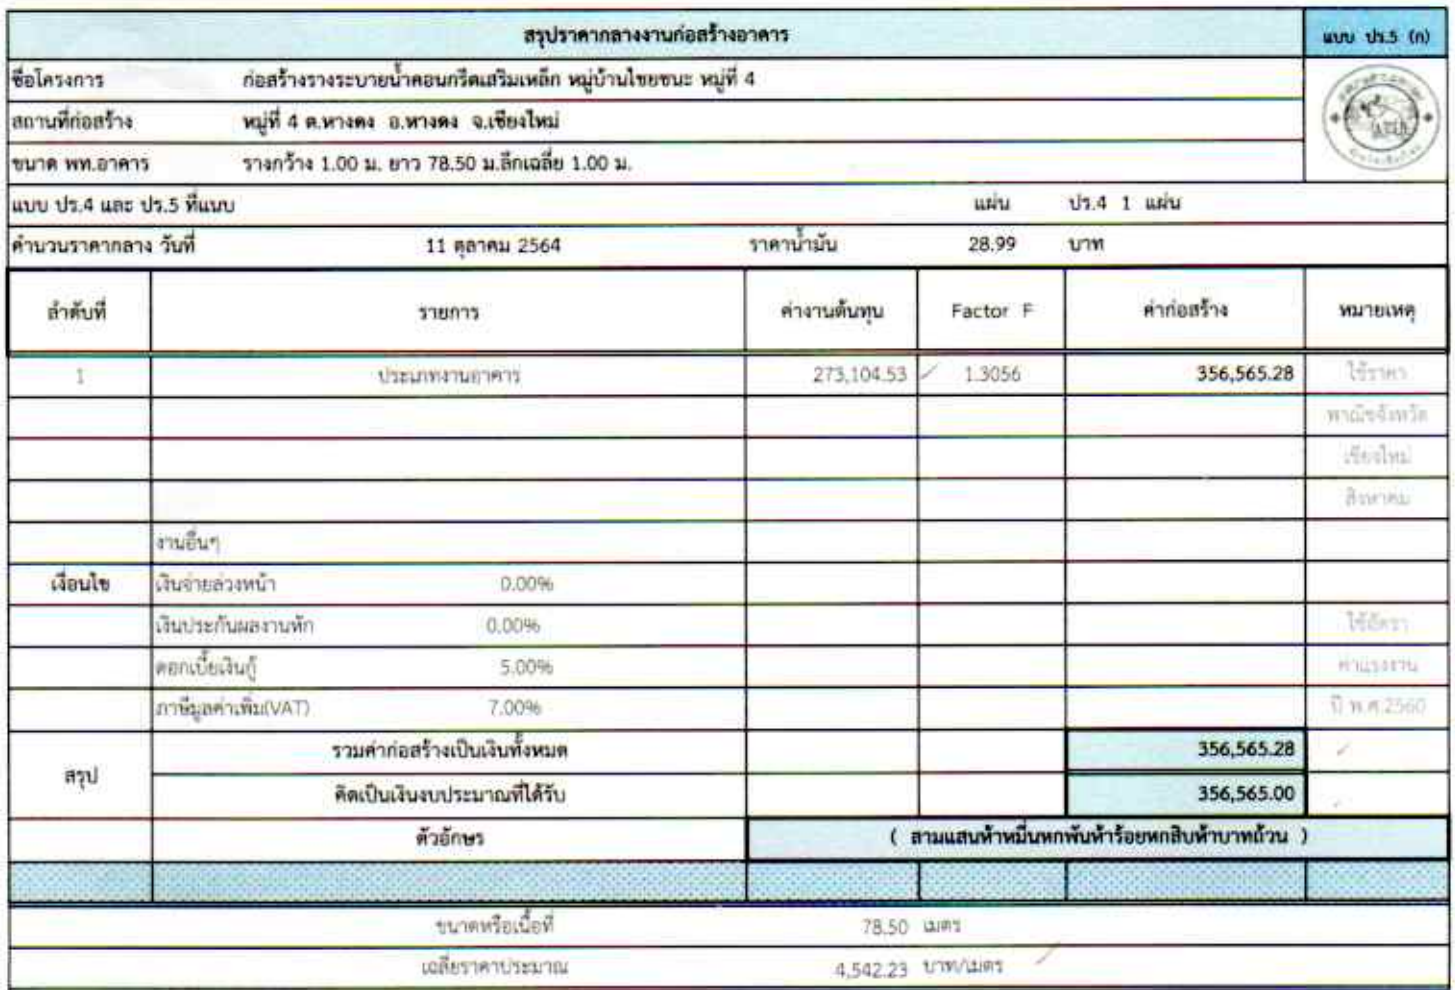 สรุปราคากลางงานก่อสร้างอาคาร แบบ ปร.5 (ก)
ชื่อโครงการ ก่อสร้างรางระบายน้ำคอนกรีตเสริมเหล็ก หมู่บ้านไชยชนะ หมู่ที่ 4
สถานที่ก่อสร้าง หมู่ที่ 4 ต.หางดง อ.หางดง จ.เชียงใหม่
ขนาด พท.อาคาร รางกว้าง 1.00 ม. ยาว 78.50 ม.ลึกเฉลี่ย 1.00 ม.
แบบ ปร.4 และ ปร.5 ที่แนบ แผ่น ปร.4 1 แผ่น
คำนวนราคากลาง วันที่ 11 ตุลาคม 2564 ราคาน้ำมัน 28.99 บาท
ลำดับที่ รายการ ค่างานต้นทุน Factor F ค่าก่อสร้าง หมายเหตุ
1 ประเภทงานอาคาร 273,104.53 1.3056 356,565.28 ใช้ราคา
พาณิชจังหวัด
เชียงใหม่
สิงหาคม
งานอื่นๆ
เงื่อนไข เงินจ่ายล่วงหน้า 0.00%
เงินประกันผลงานหัก 0.00% ใช้อัตรา
ดอกเบี้ยเงินกู้ 5.00% ค่าแรงงาน
ภาษีมูลค่าเพิ่ม(VAT) 7.00% ปี พ.ศ.2560
สรุป รวมค่าก่อสร้างเป็นเงินทั้งหมด 356,565.28
คิดเป็นเงินงบประมาณที่ได้รับ 356,565.00
ตัวอักษร ( สามแสนห้าหมื่นหกพันห้าร้อยหกสิบห้าบาทถ้วน )
ขนาดหรือเนื้อที่ 78.50 เมตร
เฉลี่ยราคาประมาณ 4,542.23 บาท/เมตร